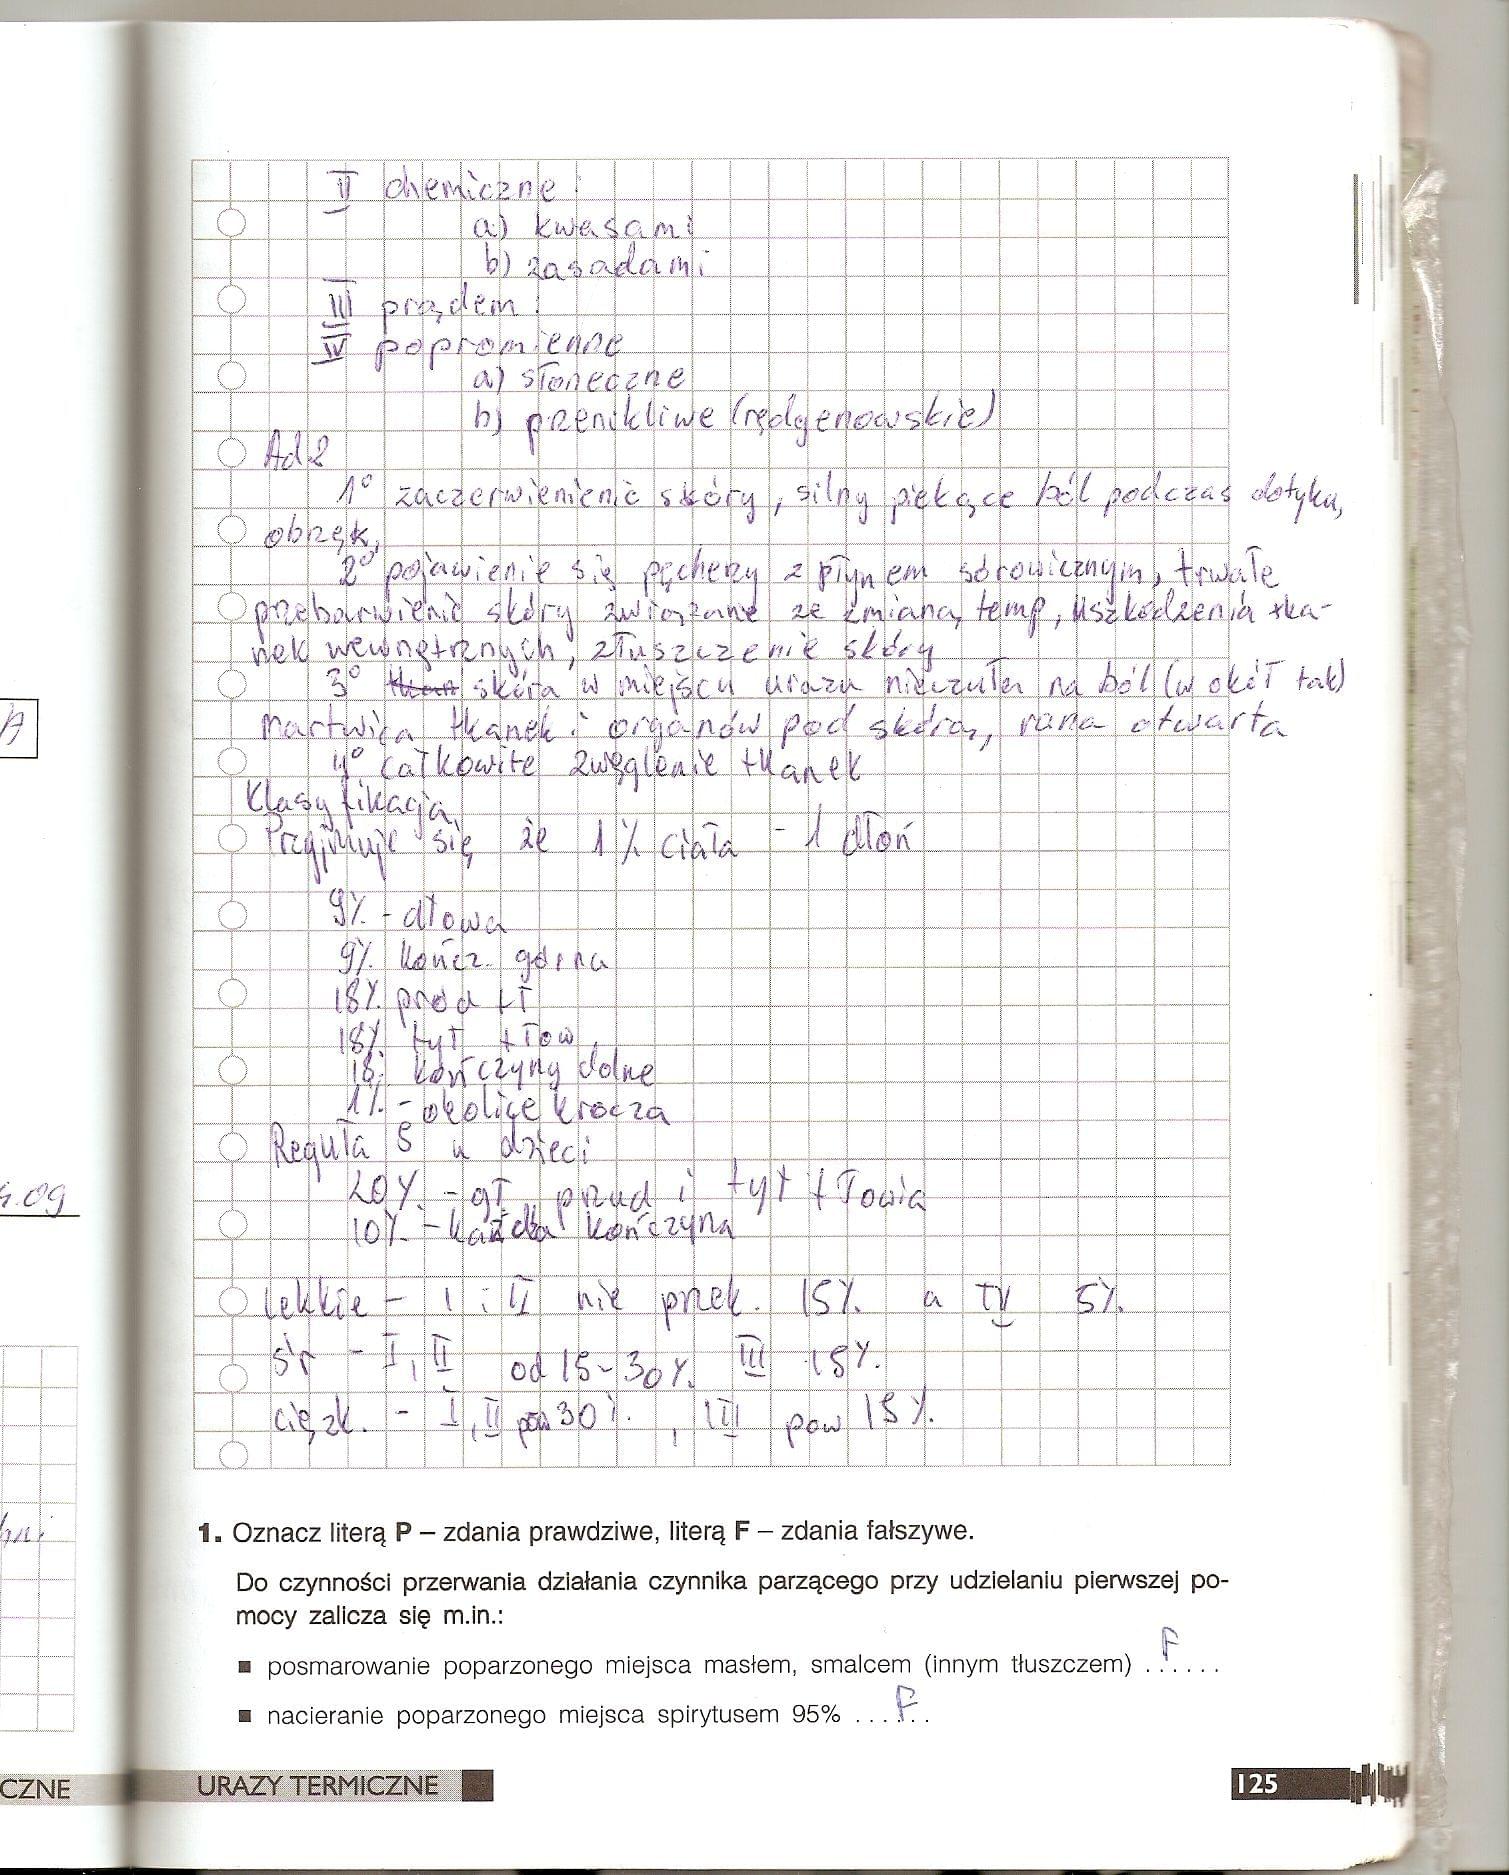 II chemiczne :
a) kwasami
b) zasadami
III prądem :
IV popromienne
a) słoneczne
b) przenikliwe (rędgenowskie)
Ad 2
1° zaczerwienienie skóry, silny piekące ból podczas dotyku,
obrzęk,
2° pojawienie się pęchezy z płynem sórowicznym, trwałe
przebarwienie skóry związane ze zmianą temp, uszkodzenia tka-
nek wewnętrznych, złuszczenie skóry
3° skóra w miejscu urazu nieczuła na ból (w okół tak)
martwica tkanek i organów pod skórą, rana otwarta
4° całkowite zwęglenie tkanek
Klasyfikacja
Przyjmuje się że 1% ciała - 1 dłoń
9% - dłowa
9% kończ. górna
18% przód tł
18% tył tłow
18% kończyny dolne
1% - okolice krocza
Reguła 5 u dzieci
20% - gł, przud i tył tłowia
10% - każda kończyna
lekkie - I i II nie przek. 15% a IV 5%.
śr - I, II od 15-30%. III 15%.
cięzk. - I, II pow 30%. , III pow 15%.
A
09
1. Oznacz literą P – zdania prawdziwe, literą F – zdania fałszywe.
Do czynności przerwania działania czynnika parzącego przy udzielaniu pierwszej po-
mocy zalicza się m.in.:
■ posmarowanie poparzonego miejsca masłem, smalcem (innym tłuszczem) ...F...
■ nacieranie poparzonego miejsca spirytusem 95% ...F..
CZNE
URAZY TERMICZNE
125